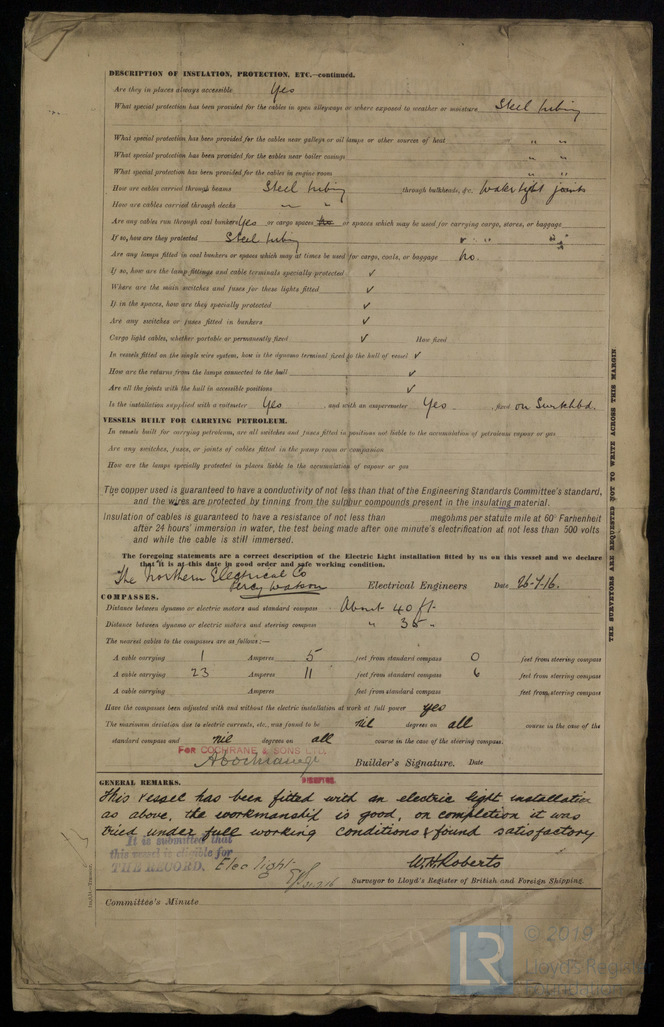 DESCRIPTION OF INSULATION, PROTECTION, ETC.—continued.
Are they in places always accessible Yes
What special protection has been provided for the cables in open alleyways or where exposed to weather or moisture Steel tubing
What special protection has been provided for the cables near galleys or oil lamps or other sources of heat " "
What special protection has been provided for the cables near boiler casings " "
What special protection has been provided for the cables in engine room " "
How are cables carried through beams Steel tubing through bulkheads, &c. Watertight joints
How are cables carried through decks " "
Are any cables run through coal bunkers Yes or cargo spaces or spaces which may be used for carrying cargo, stores, or baggage
If so, how are they protected Steel tubing
Are any lamps fitted in coal bunkers or spaces which may at times be used for cargo, coals, or baggage No.
If so, how are the lamp fittings and cable terminals specially protected ✓
Where are the main switches and fuses for these lights fitted ✓
If in the spaces, how are they specially protected ✓
Are any switches or fuses fitted in bunkers ✓
Cargo light cables, whether portable or permanently fixed ✓ How fixed
In vessels fitted on the single wire system, how is the dynamo terminal fixed to the hull of vessel ✓
How are the returns from the lamps connected to the hull ✓
Are all the joints with the hull in accessible positions ✓
Is the installation supplied with a voltmeter Yes, and with an amperemeter Yes, fixed on Switchbd.
VESSELS BUILT FOR CARRYING PETROLEUM.
In vessels built for carrying petroleum, are all switches and fuses fitted in positions not liable to the accumulation of petroleum vapour or gas
Are any switches, fuses, or joints of cables fitted in the pump room or companion
How are the lamps specially protected in places liable to the accumulation of vapour or gas
The copper used is guaranteed to have a conductivity of not less than that of the Engineering Standards Committee's standard,
and the wires are protected by tinning from the sulphur compounds present in the insulating material.
Insulation of cables is guaranteed to have a resistance of not less than megohms per statute mile at 60° Farhenheit
after 24 hours' immersion in water, the test being made after one minute's electrification at not less than 500 volts
and while the cable is still immersed.
The foregoing statements are a correct description of the Electric Light installation fitted by us on this vessel and we declare
that it is at this date in good order and safe working condition.
The Northern Electrical Co
Percy Watson Electrical Engineers Date 26-7-16.
COMPASSES.
Distance between dynamo or electric motors and standard compass About 40 ft.
Distance between dynamo or electric motors and steering compass " 35 "
The nearest cables to the compasses are as follows:—
A cable carrying 1 Amperes 5 feet from standard compass 0 feet from steering compass
A cable carrying 23 Amperes 11 feet from standard compass 6 feet from steering compass
A cable carrying Amperes feet from standard compass feet from steering compass
Have the compasses been adjusted with and without the electric installation at work at full power yes
The maximum deviation due to electric currents, etc., was found to be nil degrees on all course in the case of the
standard compass and nil degrees on all course in the case of the steering compass.
FOR COCHRANE & SONS LTD.
Builder's Signature. Date
GENERAL REMARKS.
This vessel has been fitted with an electric light installation
as above, the workmanship is good, on completion it was
tried under full working conditions & found satisfactory
It is submitted that
this vessel is eligible for
THE RECORD. Elec light
W.H.Roberts
Surveyor to Lloyd's Register of British and Foreign Shipping.
Committee's Minute
THE SURVEYORS ARE REQUESTED NOT TO WRITE ACROSS THIS MARGIN
LR
© 2019
Lloyd's Register
Foundation